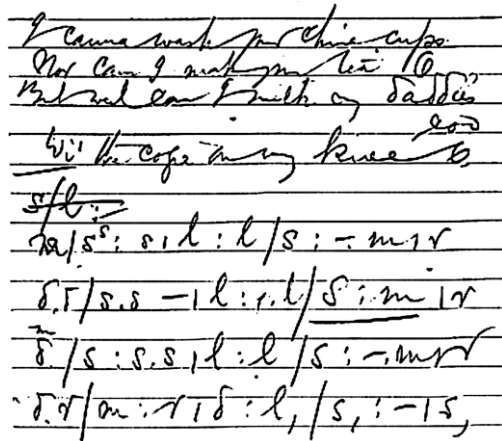 I canna wash your china cups
Nor can I mak your tea
But weel can I milk my daddie's
coo
Wi' the cogie on my knee
s/l :-
/ s : s , l : l / s : - . m , r
d . r / s . s - , l : . l / s : m , r
d / s : s . s , l : l / s : - . m , r
d . r / m : r , d : l, / s, : - , s,